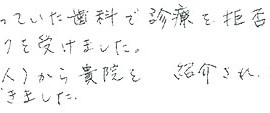 っていた歯科で診療を拒否
クを受けました。
人)から貴院を 紹介され、
きました.